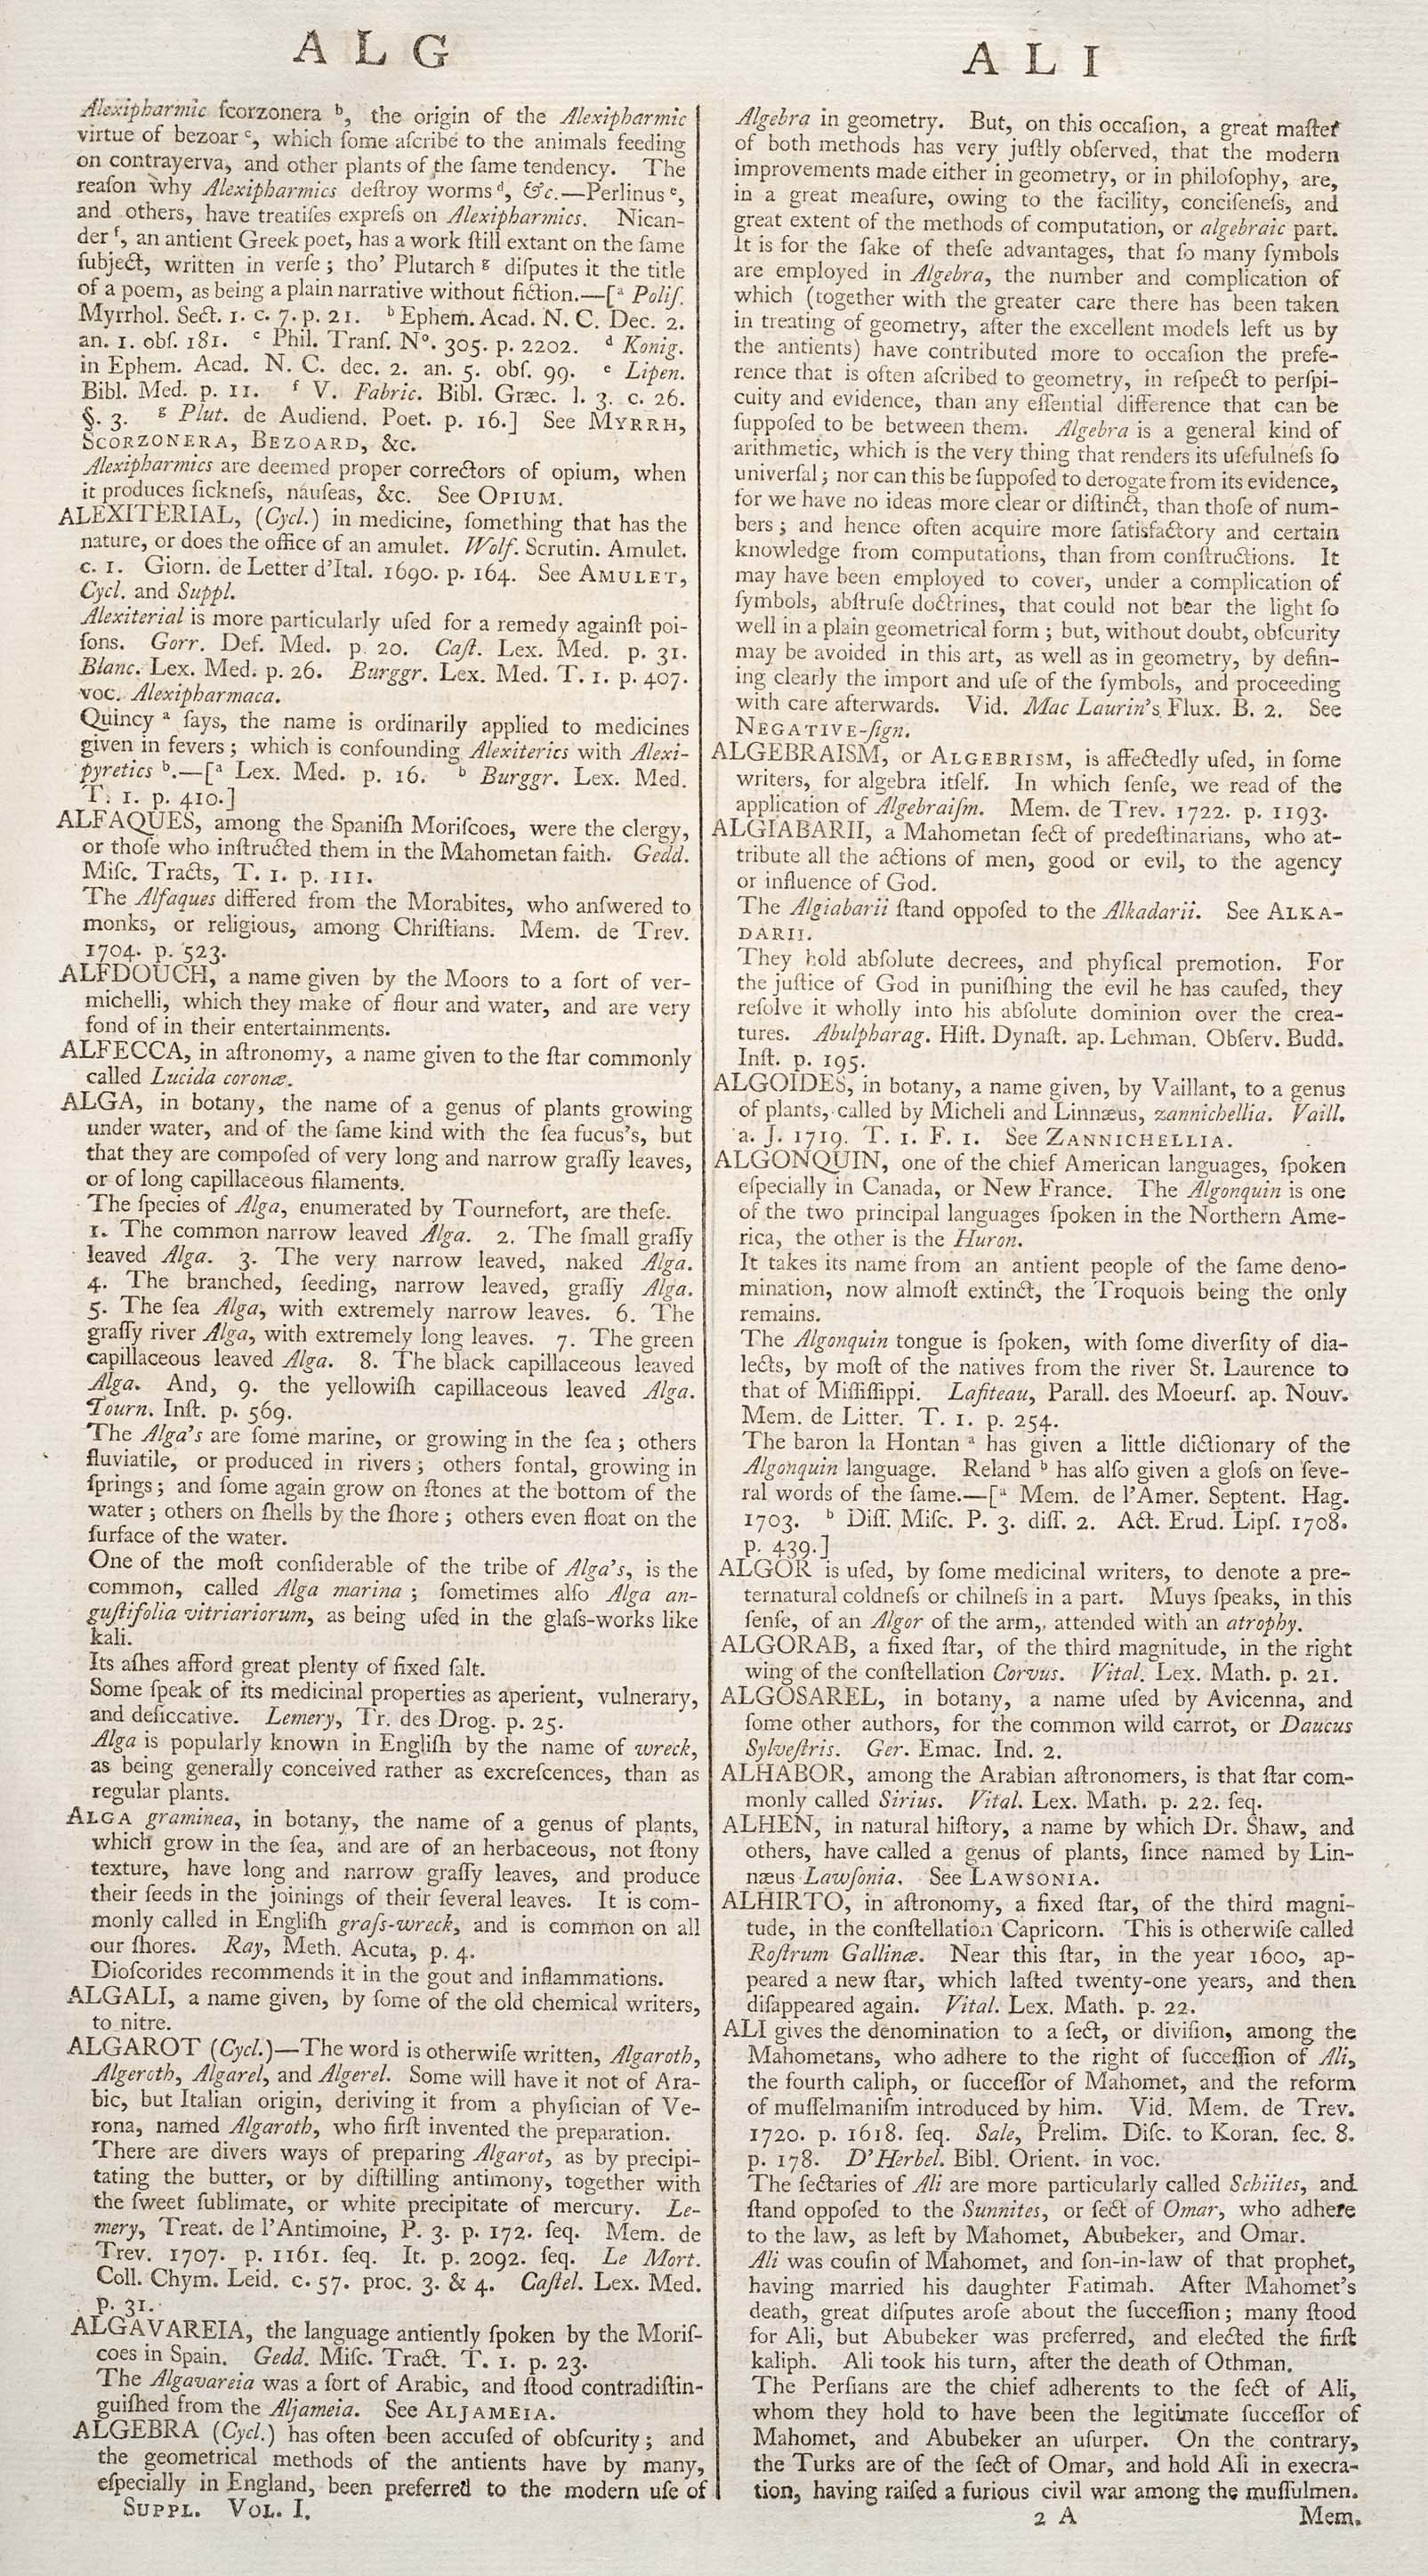 A L G
Alexipharmic ſcorzonera ᵇ, the origin of the Alexipharmic
virtue of bezoar ᶜ, which ſome aſcribe to the animals feeding
on contrayerva, and other plants of the ſame tendency. The
reaſon why Alexipharmics deſtroy worms ᵈ, &c.—Perlinus ᵉ,
and others, have treatiſes expreſs on Alexipharmics. Nican-
der ᶠ, an antient Greek poet, has a work ſtill extant on the ſame
ſubject, written in verſe; tho' Plutarch ᵍ diſputes it the title
of a poem, as being a plain narrative without fiction.—[ᵃ Poliſ.
Myrrhol. Sect. 1. c. 7. p. 21. ᵇ Ephem. Acad. N. C. Dec. 2.
an. 1. obſ. 181. ᶜ Phil. Tranſ. Nº. 305. p. 2202. ᵈ Konig.
in Ephem. Acad. N. C. dec. 2. an. 5. obſ. 99. ᵉ Lipen.
Bibl. Med. p. 11. ᶠ V. Fabric. Bibl. Græc. l. 3. c. 26.
§. 3. ᵍ Plut. de Audiend. Poet. p. 16.] See MYRRH,
SCORZONERA, BEZOARD, &c.
Alexipharmics are deemed proper correctors of opium, when
it produces ſickneſs, náuſeas, &c. See OPIUM.
ALEXITERIAL, (Cycl.) in medicine, ſomething that has the
nature, or does the office of an amulet. Wolf. Scrutin. Amulet.
c. 1. Giorn. de Letter d'Ital. 1690. p. 164. See AMULET,
Cycl. and Suppl.
Alexiterial is more particularly uſed for a remedy againſt poi-
ſons. Gorr. Def. Med. p. 20. Caſt. Lex. Med. p. 31.
Blanc. Lex. Med. p. 26. Burggr. Lex. Med. T. 1. p. 407.
voc. Alexipharmaca.
Quincy ᵃ ſays, the name is ordinarily applied to medicines
given in fevers; which is confounding Alexiterics with Alexi-
pyretics ᵇ.—[ᵃ Lex. Med. p. 16. ᵇ Burggr. Lex. Med.
T. 1. p. 410.]
ALFAQUES, among the Spaniſh Moriſcoes, were the clergy,
or thoſe who inſtructed them in the Mahometan faith. Gedd.
Miſc. Tracts, T. 1. p. 111.
The Alfaques differed from the Morabites, who anſwered to
monks, or religious, among Chriſtians. Mem. de Trev.
1704. p. 523.
ALFDOUCH, a name given by the Moors to a ſort of ver-
michelli, which they make of flour and water, and are very
fond of in their entertainments.
ALFECCA, in aſtronomy, a name given to the ſtar commonly
called Lucida coronæ.
ALGA, in botany, the name of a genus of plants growing
under water, and of the ſame kind with the ſea fucus's, but
that they are compoſed of very long and narrow graſſy leaves,
or of long capillaceous filaments.
The ſpecies of Alga, enumerated by Tournefort, are theſe.
1. The common narrow leaved Alga. 2. The ſmall graſſy
leaved Alga. 3. The very narrow leaved, naked Alga.
4. The branched, ſeeding, narrow leaved, graſſy Alga.
5. The ſea Alga, with extremely narrow leaves. 6. The
graſſy river Alga, with extremely long leaves. 7. The green
capillaceous leaved Alga. 8. The black capillaceous leaved
Alga. And, 9. the yellowiſh capillaceous leaved Alga.
Tourn. Inſt. p. 569.
The Alga's are ſome marine, or growing in the ſea; others
fluviatile, or produced in rivers; others fontal, growing in
ſprings; and ſome again grow on ſtones at the bottom of the
water; others on ſhells by the ſhore; others even float on the
ſurface of the water.
One of the moſt conſiderable of the tribe of Alga's, is the
common, called Alga marina; ſometimes alſo Alga an-
guſtifolia vitriariorum, as being uſed in the glaſs-works like
kali.
Its aſhes afford great plenty of fixed ſalt.
Some ſpeak of its medicinal properties as aperient, vulnerary,
and deſiccative. Lemery, Tr. des Drog. p. 25.
Alga is popularly known in Engliſh by the name of wreck,
as being generally conceived rather as excreſcences, than as
regular plants.
ALGA graminea, in botany, the name of a genus of plants,
which grow in the ſea, and are of an herbaceous, not ſtony
texture, have long and narrow graſſy leaves, and produce
their ſeeds in the joinings of their ſeveral leaves. It is com-
monly called in Engliſh graſs-wreck, and is common on all
our ſhores. Ray, Meth. Acuta, p. 4.
Dioſcorides recommends it in the gout and inflammations.
ALGALI, a name given, by ſome of the old chemical writers,
to nitre.
ALGAROT (Cycl.)—The word is otherwiſe written, Algaroth,
Algeroth, Algarel, and Algerel. Some will have it not of Ara-
bic, but Italian origin, deriving it from a phyſician of Ve-
rona, named Algaroth, who firſt invented the preparation.
There are divers ways of preparing Algarot, as by precipi-
tating the butter, or by diſtilling antimony, together with
the ſweet ſublimate, or white precipitate of mercury. Le-
mery, Treat. de l'Antimoine, P. 3. p. 172. ſeq. Mem. de
Trev. 1707. p. 1161. ſeq. It. p. 2092. ſeq. Le Mort.
Coll. Chym. Leid. c. 57. proc. 3. & 4. Caſtel. Lex. Med.
p. 31.
ALGAVAREIA, the language antiently ſpoken by the Moriſ-
coes in Spain. Gedd. Miſc. Tract. T. 1. p. 23.
The Algavareia was a ſort of Arabic, and ſtood contradiſtin-
guiſhed from the Aljameia. See ALJAMEIA.
ALGEBRA (Cycl.) has often been accuſed of obſcurity; and
the geometrical methods of the antients have by many,
eſpecially in England, been preferred to the modern uſe of
SUPPL. VOL. I.
A L I
Algebra in geometry. But, on this occaſion, a great maſter
of both methods has very juſtly obſerved, that the modern
improvements made either in geometry, or in philoſophy, are,
in a great meaſure, owing to the facility, conciſeneſs, and
great extent of the methods of computation, or algebraic part.
It is for the ſake of theſe advantages, that ſo many ſymbols
are employed in Algebra, the number and complication of
which (together with the greater care there has been taken
in treating of geometry, after the excellent models left us by
the antients) have contributed more to occaſion the prefe-
rence that is often aſcribed to geometry, in reſpect to perſpi-
cuity and evidence, than any eſſential difference that can be
ſuppoſed to be between them. Algebra is a general kind of
arithmetic, which is the very thing that renders its uſefulneſs ſo
univerſal; nor can this be ſuppoſed to derogate from its evidence,
for we have no ideas more clear or diſtinct, than thoſe of num-
bers; and hence often acquire more ſatisfactory and certain
knowledge from computations, than from conſtructions. It
may have been employed to cover, under a complication of
ſymbols, abſtruſe doctrines, that could not bear the light ſo
well in a plain geometrical form; but, without doubt, obſcurity
may be avoided in this art, as well as in geometry, by defin-
ing clearly the import and uſe of the ſymbols, and proceeding
with care afterwards. Vid. Mac Laurin's Flux. B. 2. See
NEGATIVE-ſign.
ALGEBRAISM, or ALGEBRISM, is affectedly uſed, in ſome
writers, for algebra itſelf. In which ſenſe, we read of the
application of Algebraiſm. Mem. de Trev. 1722. p. 1193.
ALGIABARII, a Mahometan ſect of predeſtinarians, who at-
tribute all the actions of men, good or evil, to the agency
or influence of God.
The Algiabarii ſtand oppoſed to the Alkadarii. See ALKA-
DARII.
They hold abſolute decrees, and phyſical premotion. For
the juſtice of God in puniſhing the evil he has cauſed, they
reſolve it wholly into his abſolute dominion over the crea-
tures. Abulpharag. Hiſt. Dynaſt. ap. Lehman. Obſerv. Budd.
Inſt. p. 195.
ALGOIDES, in botany, a name given, by Vaillant, to a genus
of plants, called by Micheli and Linnæus, zannichellia. Vaill.
a. J. 1719. T. 1. F. 1. See ZANNICHELLIA.
ALGONQUIN, one of the chief American languages, ſpoken
eſpecially in Canada, or New France. The Algonquin is one
of the two principal languages ſpoken in the Northern Ame-
rica, the other is the Huron.
It takes its name from an antient people of the ſame deno-
mination, now almoſt extinct, the Troquois being the only
remains.
The Algonquin tongue is ſpoken, with ſome diverſity of dia-
lects, by moſt of the natives from the river St. Laurence to
that of Miſſiſſippi. Lafiteau, Parall. des Moeurſ. ap. Nouv.
Mem. de Litter. T. 1. p. 254.
The baron la Hontan ᵃ has given a little dictionary of the
Algonquin language. Reland ᵇ has alſo given a gloſs on ſeve-
ral words of the ſame.—[ᵃ Mem. de l'Amer. Septent. Hag.
1703. ᵇ Diſſ. Miſc. P. 3. diſſ. 2. Act. Erud. Lipſ. 1708.
p. 439.]
ALGOR is uſed, by ſome medicinal writers, to denote a pre-
ternatural coldneſs or chilneſs in a part. Muys ſpeaks, in this
ſenſe, of an Algor of the arm, attended with an atrophy.
ALGORAB, a fixed ſtar, of the third magnitude, in the right
wing of the conſtellation Corvus. Vital. Lex. Math. p. 21.
ALGOSAREL, in botany, a name uſed by Avicenna, and
ſome other authors, for the common wild carrot, or Daucus
Sylveſtris. Ger. Emac. Ind. 2.
ALHABOR, among the Arabian aſtronomers, is that ſtar com-
monly called Sirius. Vital. Lex. Math. p. 22. ſeq.
ALHEN, in natural hiſtory, a name by which Dr. Shaw, and
others, have called a genus of plants, ſince named by Lin-
næus Lawſonia. See LAWSONIA.
ALHIRTO, in aſtronomy, a fixed ſtar, of the third magni-
tude, in the conſtellation Capricorn. This is otherwiſe called
Roſtrum Gallinæ. Near this ſtar, in the year 1600, ap-
peared a new ſtar, which laſted twenty-one years, and then
diſappeared again. Vital. Lex. Math. p. 22.
ALI gives the denomination to a ſect, or diviſion, among the
Mahometans, who adhere to the right of ſucceſſion of Ali,
the fourth caliph, or ſucceſſor of Mahomet, and the reform
of muſſelmaniſm introduced by him. Vid. Mem. de Trev.
1720. p. 1618. ſeq. Sale, Prelim. Diſc. to Koran. ſec. 8.
p. 178. D'Herbel. Bibl. Orient. in voc.
The ſectaries of Ali are more particularly called Schiites, and
ſtand oppoſed to the Sunnites, or ſect of Omar, who adhere
to the law, as left by Mahomet, Abubeker, and Omar.
Ali was couſin of Mahomet, and ſon-in-law of that prophet,
having married his daughter Fatimah. After Mahomet's
death, great diſputes aroſe about the ſucceſſion; many ſtood
for Ali, but Abubeker was preferred, and elected the firſt
kaliph. Ali took his turn, after the death of Othman.
The Perſians are the chief adherents to the ſect of Ali,
whom they hold to have been the legitimate ſucceſſor of
Mahomet, and Abubeker an uſurper. On the contrary,
the Turks are of the ſect of Omar, and hold Ali in execra-
tion, having raiſed a furious civil war among the muſſulmen.
2 A Mem.